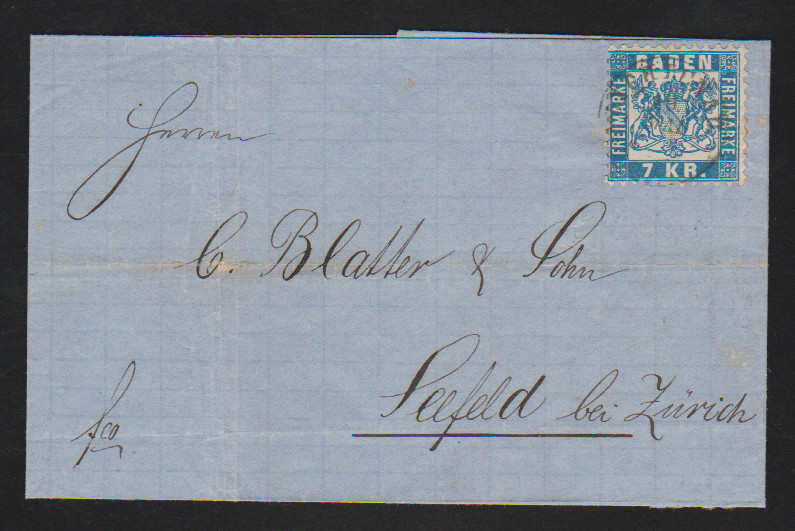 BADEN
FREIMARKE
FREIMARKE
7 KR.
Herren
C. Blatter & Sohn
Seefeld bei Zürich
fco